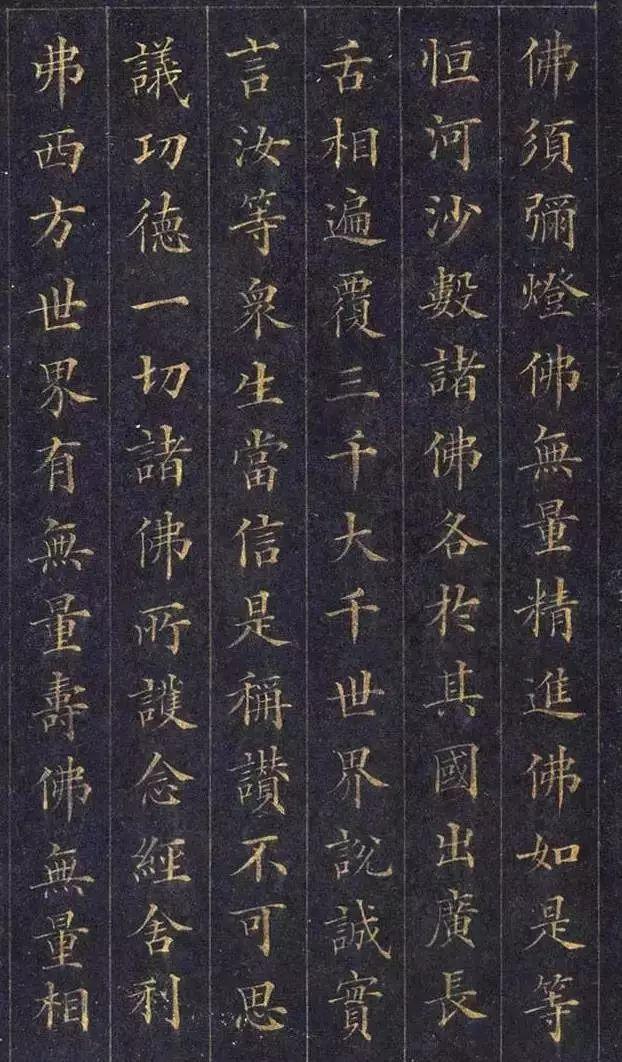 佛須彌燈佛無量精進佛如是等
恒河沙數諸佛各於其國出廣長
舌相遍覆三千大千世界說誠實
言汝等衆生當信是稱讚不可思
議功德一切諸佛所護念經舍利
弗西方世界有無量壽佛無量相